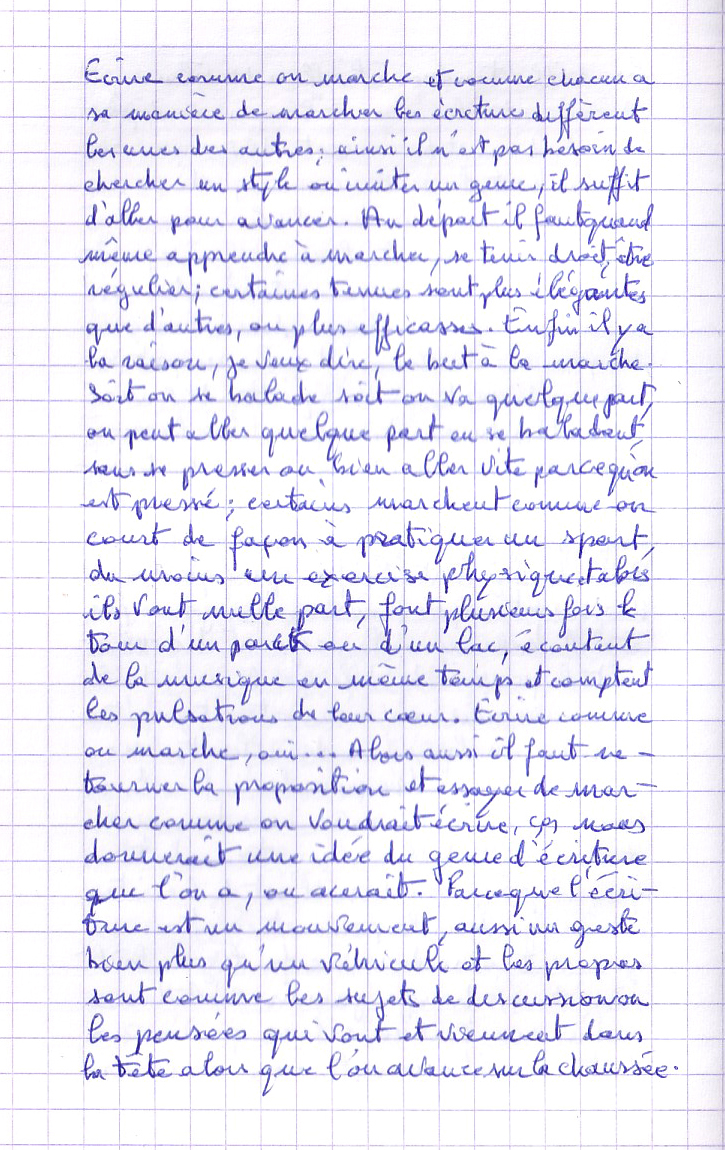 Ecrire comme on marche et comme chacun a
sa manière de marcher les écriture diffèrent
les unes des autres; ainsi il n'est pas besoin de
chercher un style ou imiter un genre, il suffit
d'aller pour avancer. Au départ il faut quand
même apprendre à marcher, se tenir droit, être
régulier; certaines tenues sont plus élégantes
que d'autres, ou plus efficasses. Enfin il y a
la raison, je veux dire, le but à la marche.
Soit on se balade soit on va quelque part,
on peut aller quelque part en se baladant,
sans se presser ou bien aller vite parcequ'on
est pressé; certains marchent comme on
court de façon à pratiquer un sport,
du moins un exercise physique et alors
ils vont nulle part, font plusieurs fois le
tour d'un parc ou d'un lac, écoutent
de la musique en même temps et comptent
les pulsations de leur cœur. Ecrire comme
on marche, oui... Alors aussi il faut re-
tourner la proposition et essayer de mar-
cher comme on voudrait écrire, ça nous
donnerait une idée du genre d'écriture
que l'on a, ou aurait. Parceque l'écri-
ture est un mouvement, aussi un geste
bien plus qu'un véhicule et les propos
sont comme les sujets de discussion ou
les pensées qui vont et viennent dans
la tête alors que l'on avance sur la chaussée.